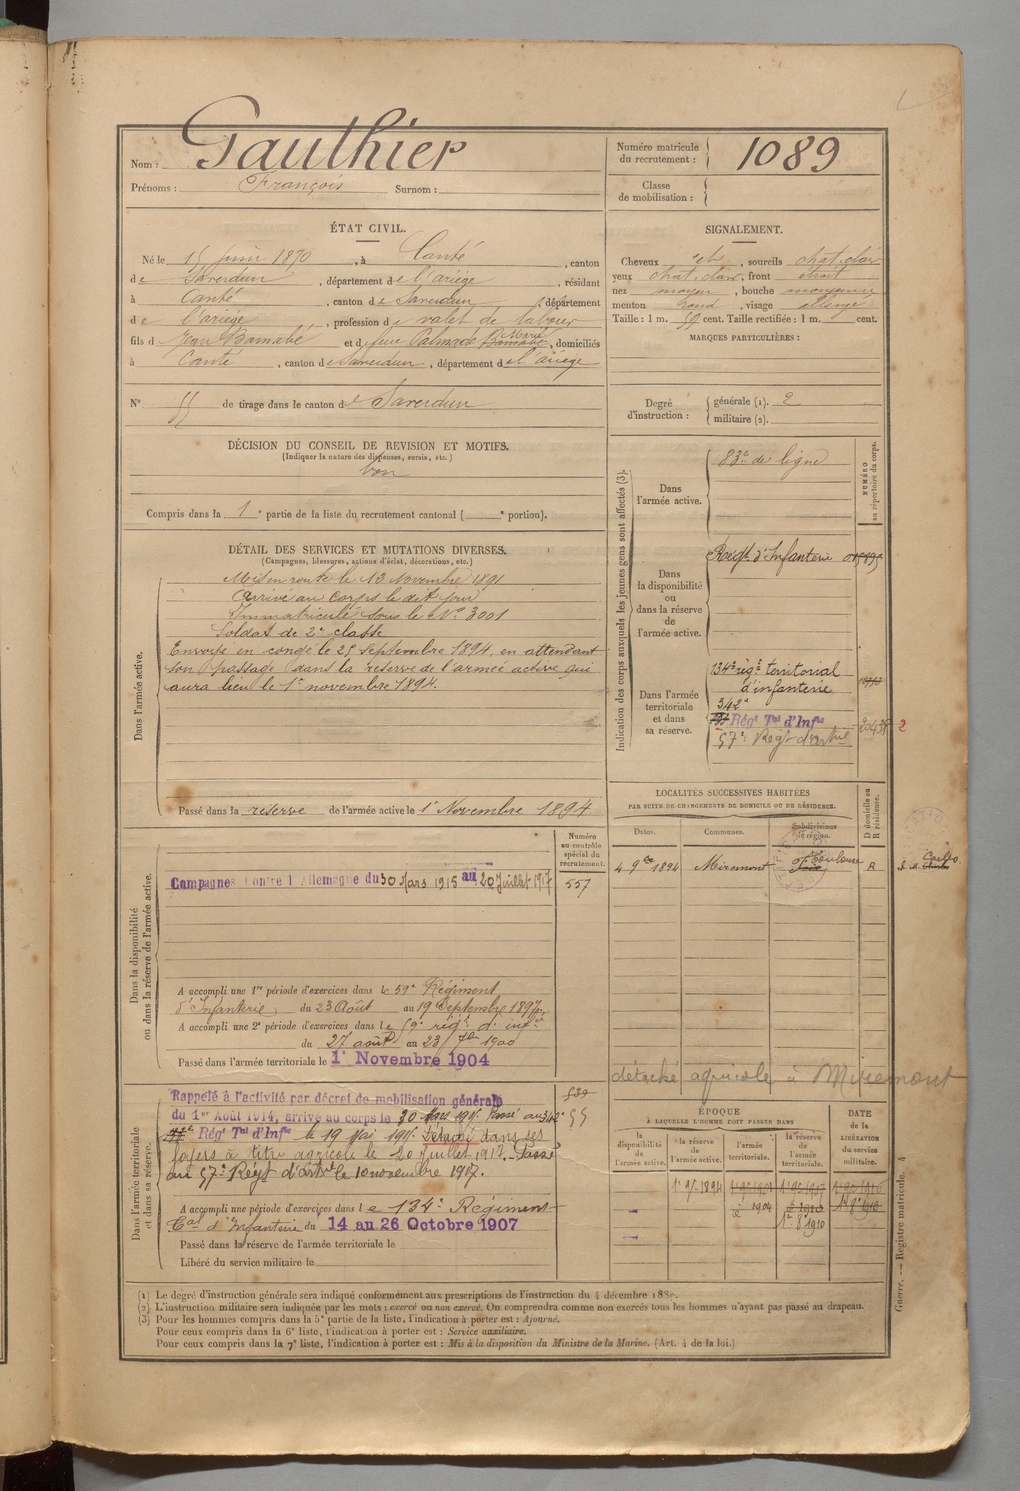 Nom : Gauthier
Prénoms : François Surnom :
Numéro matricule du recrutement : 1089
Classe de mobilisation :
ÉTAT CIVIL.
Né le 15 Juin 1870, à Canté, canton
de Saverdun, département de l'ariège, résidant
à Canté, canton de Saverdun, département
de l'ariège, profession de valet de labour
fils d Jean Barnabé et d feue Palmade Marie, domiciliés
à Canté, canton de Saverdun, département de l'ariège
N° 55 de tirage dans le canton de Saverdun
DÉCISION DU CONSEIL DE REVISION ET MOTIFS.
(Indiquer la nature des dispenses, sursis, etc.)
bon
Compris dans la 1e partie de la liste du recrutement cantonal ( e portion).
SIGNALEMENT.
Cheveux , sourcils chat. clair
yeux chat. clair, front étroit
nez moyen, bouche moyenne
menton rond, visage allongé
Taille : 1 m. 59 cent. Taille rectifiée : 1 m. cent.
MARQUES PARTICULIÈRES :
Degré d'instruction : générale (1). 2
militaire (2).
DÉTAIL DES SERVICES ET MUTATIONS DIVERSES.
(Campagnes, blessures, actions d'éclat, décorations, etc.)
Dans l'armée active.
Mis en route le 13 Novembre 1891
Arrivé au corps le dit jour
Immatriculé sous le N° 3001
Soldat de 2e classe
Envoyé en congé le 25 septembre 1894, en attendant
son passage dans la réserve de l'armée active qui
aura lieu le 1er novembre 1894.
Passé dans la réserve de l'armée active le 1er Novembre 1894
Indication des corps auxquels les jeunes gens sont affectés (3).
NUMÉRO au répertoire du corps.
Dans l'armée active.
83e de ligne
Dans la disponibilité ou dans la réserve de l'armée active.
Régt d'Infanterie
Dans l'armée territoriale et dans sa réserve.
134e régt territorial
d'infanterie
342e
Régt Tal d'Infie
57e Régt d'Artie
2
LOCALITÉS SUCCESSIVES HABITÉES
PAR SUITE DE CHANGEMENTS DE DOMICILE OU DE RÉSIDENCE.
Dates. Communes. Subdivisions de région. D domicile ou R résidence.
4 9bre 1894 Miremont Toulouse R
Dans la disponibilité ou dans la réserve de l'armée active.
Numéro au contrôle spécial du recrutement.
Campagnes contre l'Allemagne du 30 Mars 1915 au 20 Juillet 1917
557
A accompli une 1re période d'exercices dans le 59e Régiment
d'Infanterie, du 23 Août au 19 Septembre 1897
A accompli une 2e période d'exercices dans le 59e régt d'infie
du 27 août au 23 7bre 1900
Passé dans l'armée territoriale le 1er Novembre 1904
détaché agricole à Miremont
Dans l'armée territoriale et dans sa réserve.
Rappelé à l'activité par décret de mobilisation générale
du 1er Août 1914, arrivé au corps le 30 Mars 1915. Passé au 342e
Régt Tal d'Infie le 19 Mai 1915. Détaché dans ses
foyers à titre agricole le 20 juillet 1917. Passé
au 57e Régt d'artie le 10 novembre 1917.
A accompli une période d'exercices dans le 134e Régiment
Tal d'Infanterie du 14 au 26 Octobre 1907
Passé dans la réserve de l'armée territoriale le
Libéré du service militaire le
ÉPOQUE
À LAQUELLE L'HOMME DOIT PASSER DANS
la disponibilité de l'armée active. la réserve de l'armée active. l'armée territoriale. la réserve de l'armée territoriale.
DATE de la LIBÉRATION du service militaire.
1er 9bre 1894
1904
1er 8bre 1910
(1) Le degré d'instruction générale sera indiqué conformément aux prescriptions de l'instruction du 4 décembre
(2) L'instruction militaire sera indiquée par les mots : exercé ou non exercé. On comprendra comme non exercés tous les hommes n'ayant pas passé au drapeau.
(3) Pour les hommes compris dans la 5e partie de la liste, l'indication à porter est : Ajourné.
Pour ceux compris dans la 6e liste, l'indication à porter est : Service auxiliaire.
Pour ceux compris dans la 7e liste, l'indication à porter est : Mis à la disposition du Ministre de la Marine. (Art. 4 de la loi.)
Guerre. — Registre matricule. A